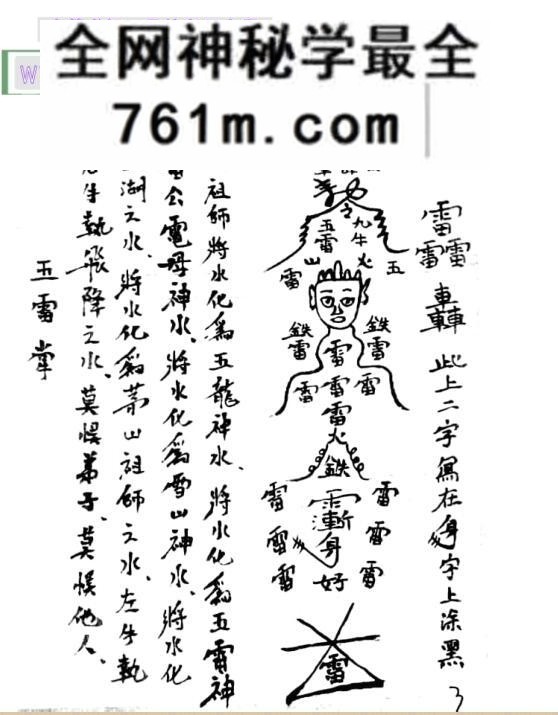 全网神秘学最全
761m.com
W
雷
雷雷
轟 此上二字寫在身字上涂黑
五雷
九牛
山 火
雷 五
鉄雷 鉄雷
雷
雷雷雷
雷
火
鉄
雷 雷
雷 身 雷
雷 好 雷
雷
祖師將水化為五龍神水、將水化為五雷神
公電母神水、將水化為雪山神水、將水化
湖之水、將水化為茅山祖師之水、左牛執
牛執飛降之水、莫悞弟子、莫悞他人、
五雷掌